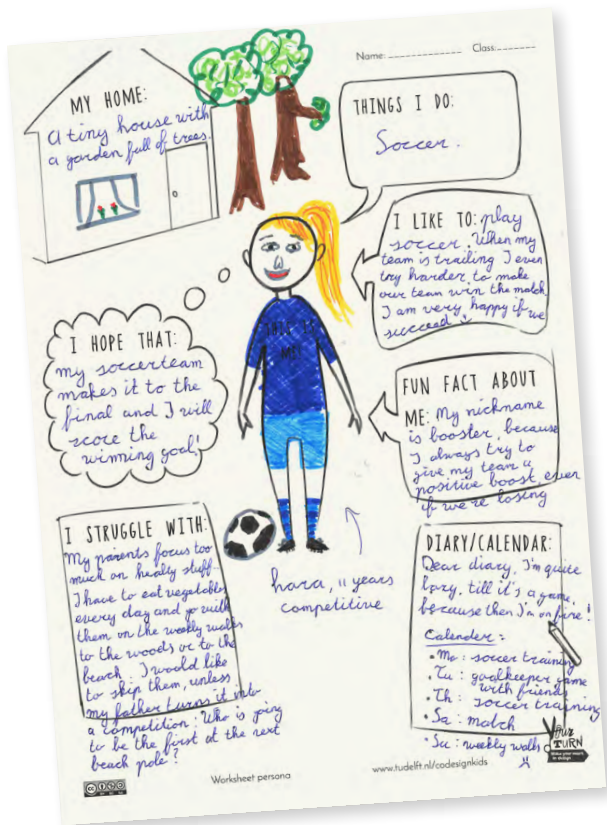 Name: ____________ Class: _______
MY HOME:
A tiny house with
a garden full of trees.
THINGS I DO:
Soccer.
I LIKE TO: play
soccer. When my
team is trailing I even
try harder to make
our team win the match.
I am very happy if we
succeed
I HOPE THAT:
my soccerteam
makes it to the
final and I will
score the
winning goal!
THIS IS
ME!
FUN FACT ABOUT
ME: My nickname
is booster, because
I always try to
give my team a
positive boost even
if we're losing
I STRUGGLE WITH:
My parents focus too
much on healty stuff.
I have to eat vegetables
every day and go with
them on the weekly walks
to the woods or to the
beach. I would like
to skip them, unless
my father turns it into
a competition: Who is going
to be the first at the next
beach pole?
11 years
competitive
DIARY/CALENDAR:
Dear diary, I'm quite
lazy, till it's a game,
because then I'm on fire!
Calender:
• Mo: soccer training
• Tu: goalkeeper game
with friends
• Th: soccer training
• Sa: match
• Su: weekly walks
Your
TURN
Worksheet persona
www.tudelft.nl/codesignkids